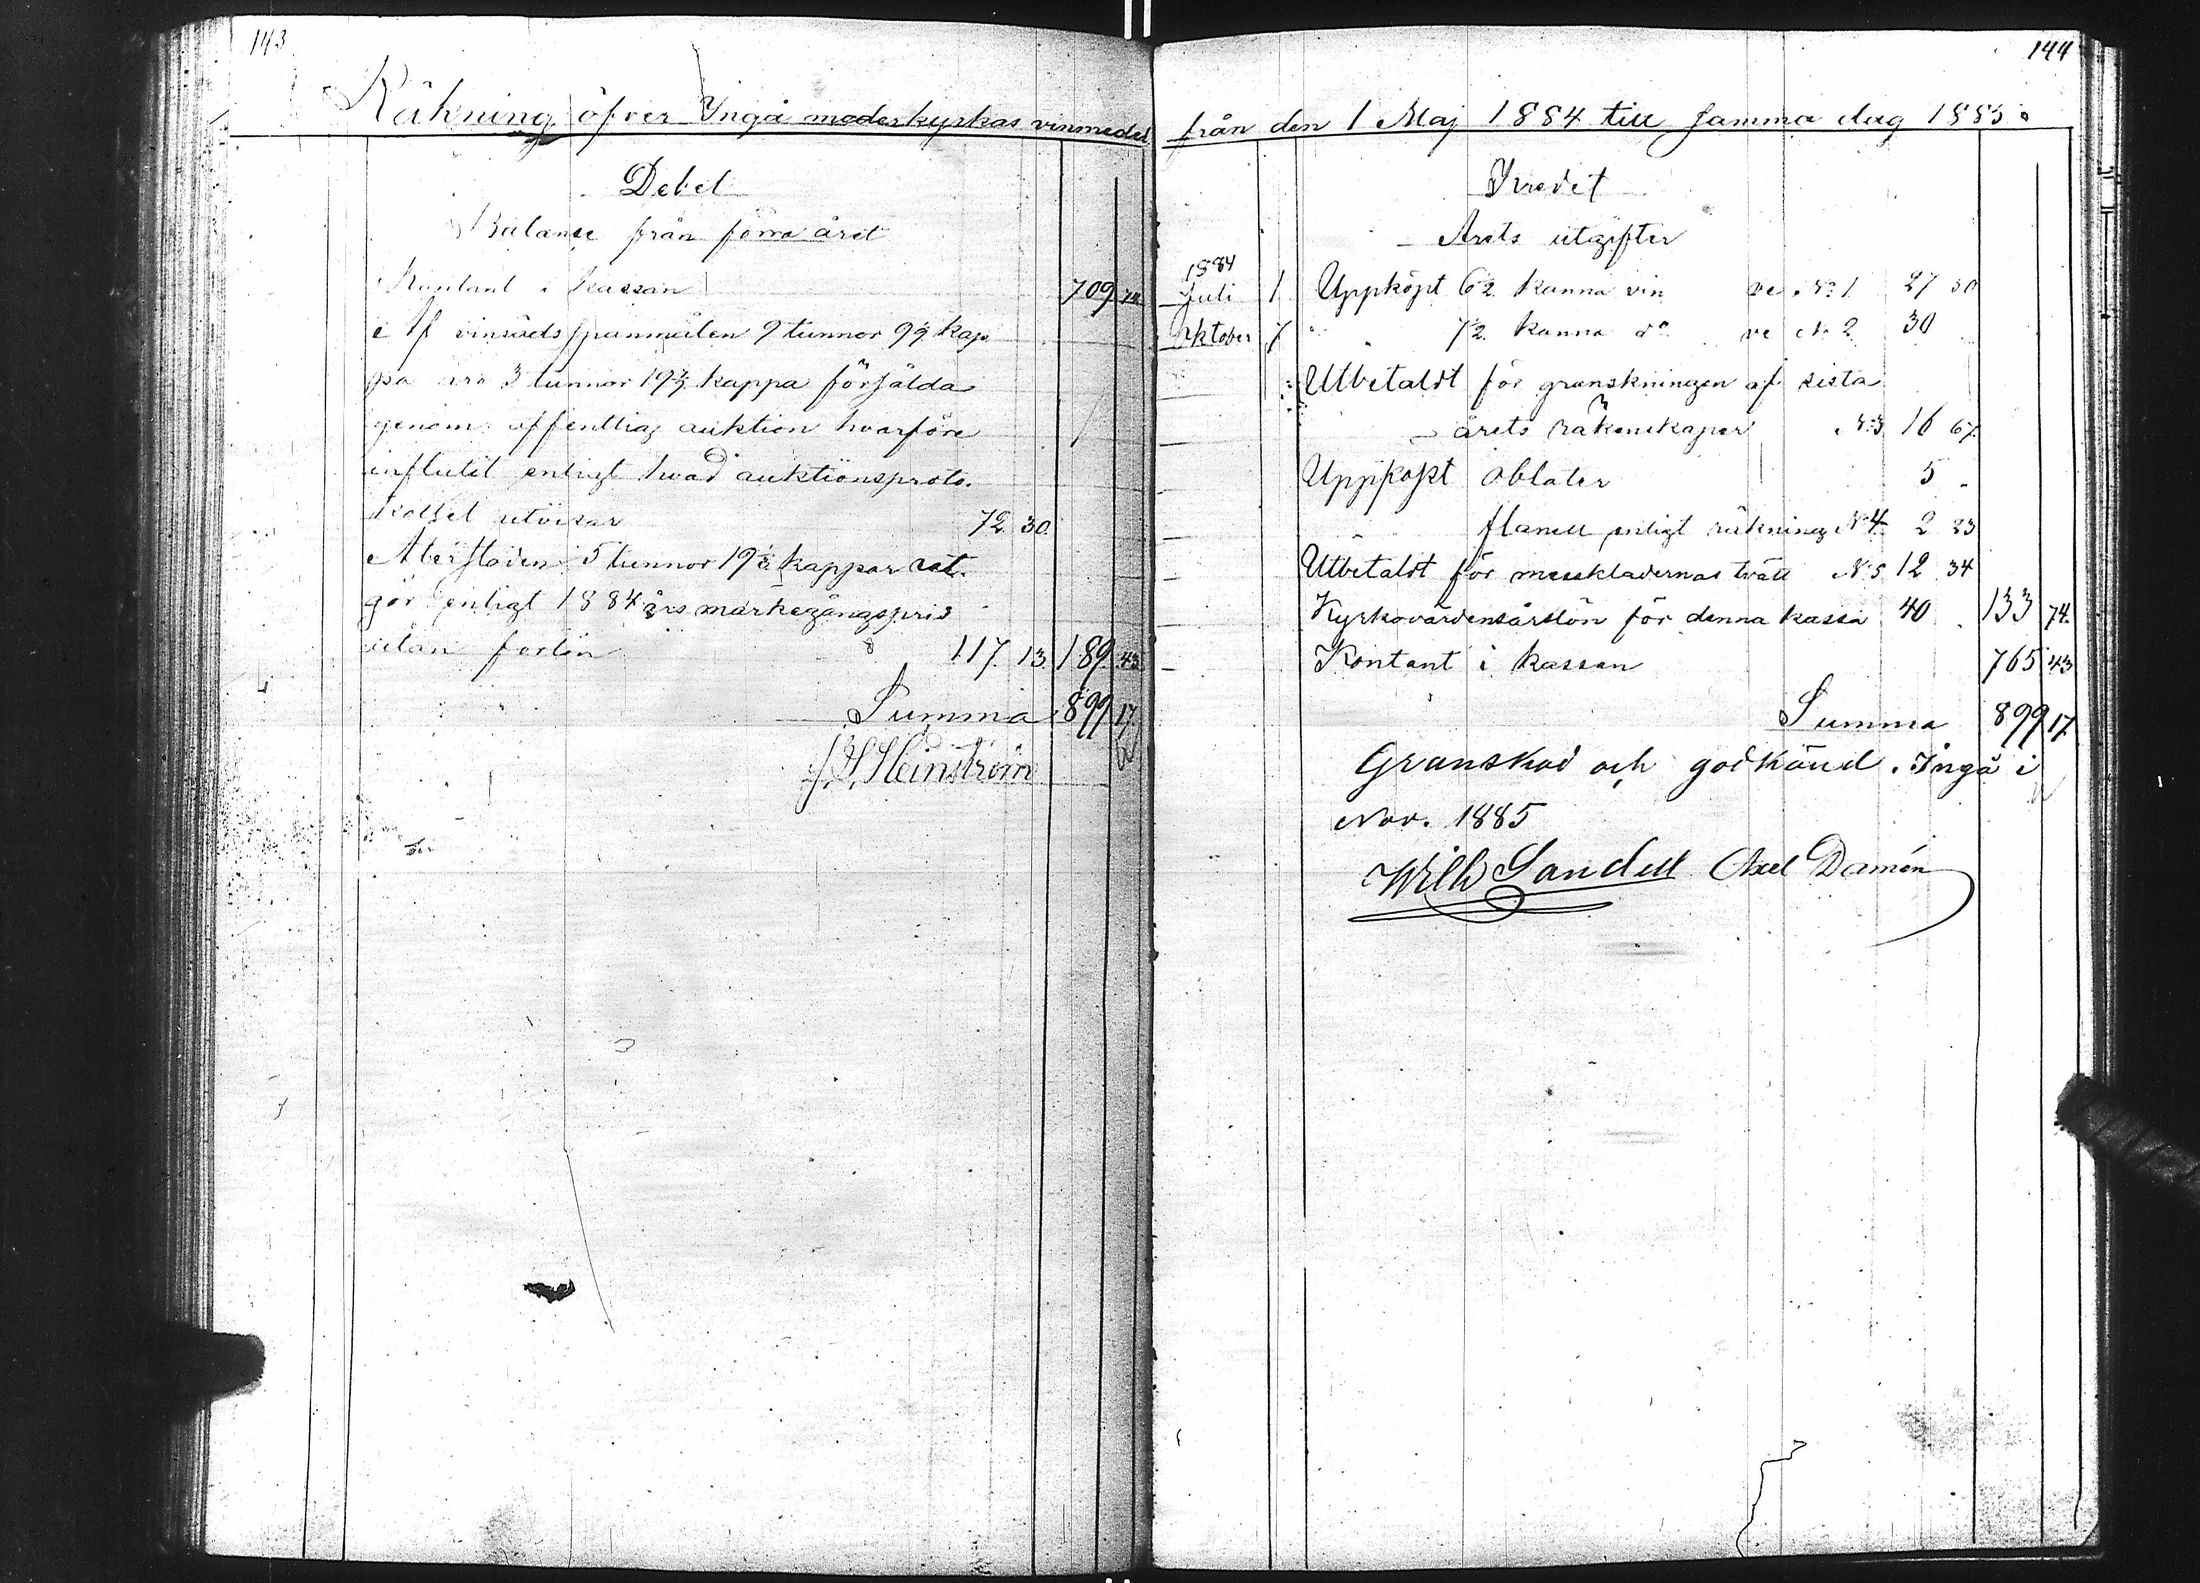 143
Räkning öfver Ingå moderkyrkas vinmedel
Debet
Balanse från förra året
Kontant i kassan 709 74
Af vinsäds spanmålen 9 tunnor 9½ kap
pa äro 3 tunnor 19⅔ kappa försålda
genom offentlig auktion hvarföre
influtit enligt hvad auktionsproto-
kollet utvisar 72 30
Återstoden 5 tunnor 19½ kappar ut-
gör enligt 1884 års markegångspris
utan forlön 117 13 189 43
Summa 899 17
Heinström
144
från den 1 Maj 1884 till samma dag 1885.
Kredit
Årets utgifter
1884
Juli 1 Uppköpt 6½ kanna vin ve. No 1 27 50
Oktober 7 " 7½ kanna do ve No 2 30
Utbetaldt för granskningen af sista
årets räkenskaper No 3 16 67
Uppköpt oblater 5 -
flanell enligt räkning No 4 2 23
Utbetaldt för messklädernas tvätt No 5 12 34
Kyrkovärdensårslön för denna kassa 40 . 133 74
Kontant i kassan 765 43
Summa 899 17
Granskad och godkänd. Ingå i
Nov. 1885
Wilh Sandell Axel Damén